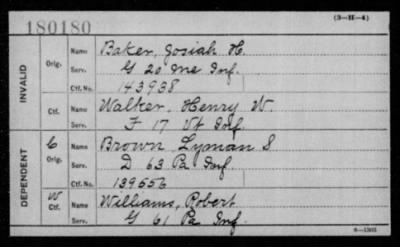 180180
(3-H-4)
INVALID
Orig. Name Baker, Josiah H.
Serv. G 20 Me Inf.
Ctf. No. 143938
Ctf. Name Walker, Henry W.
Serv. F 17 Vt Inf.
DEPENDENT
C Orig. Name Brown, Lyman S
Serv. D 63 Pa Inf
Ctf. No. 139556
W Ctf. Name Williams, Robert
Serv. G 61 Pa Inf.